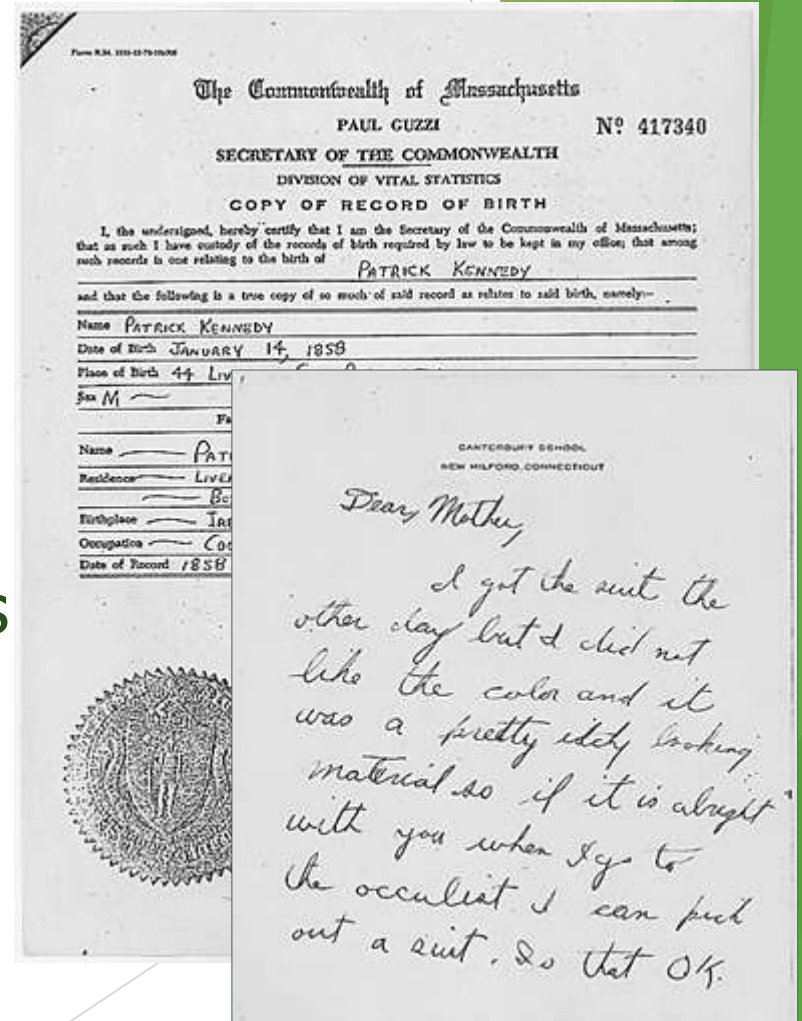 The Commonwealth of Massachusetts
PAUL GUZZI
Nº 417340
SECRETARY OF THE COMMONWEALTH
DIVISION OF VITAL STATISTICS
COPY OF RECORD OF BIRTH
I, the undersigned, hereby certify that I am the Secretary of the Commonwealth of Massachusetts;
that as such I have custody of the records of birth required by law to be kept in my office; that among
such records is one relating to the birth of
PATRICK KENNEDY
and that the following is a true copy of so much of said record as relates to said birth, namely:—
Name PATRICK KENNEDY
Date of Birth JANUARY 14, 1858
Place of Birth 44 LIV
Sex M
Fa
Name PAT
Residence LIVE
Bo
Birthplace IRE
Occupation COO
Date of Record 1858
S
CANTERBURY SCHOOL
NEW MILFORD, CONNECTICUT
Dear Mother,
I got the suit the
other day but I did not
like the color and it
was a pretty itchy looking
material so if it is alright
with you when I go to
the occulist I can pick
out a suit. Is that OK.